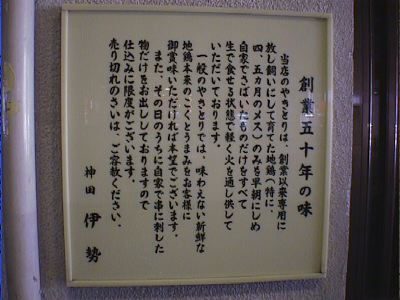 創業五十年の味
当店のやきとりは、創業以来専用に
放し飼いにして育てた地鶏（特に、
四、五ヶ月のメス）のみを早朝にしめ
自家でさばいたものだけをすべて
生で食せる状態で軽く火を通し供して
いただいております。
一般のやきとりでは、味わえない新鮮な
地鶏本来のこくとうまみをお客様に
御賞味いただければ本望でございます。
また、その日のうちに自家で串に刺した
物だけをお出ししておりますので
仕込みに限度がございます。
売り切れのさいは、ご容赦ください。
神田 伊勢